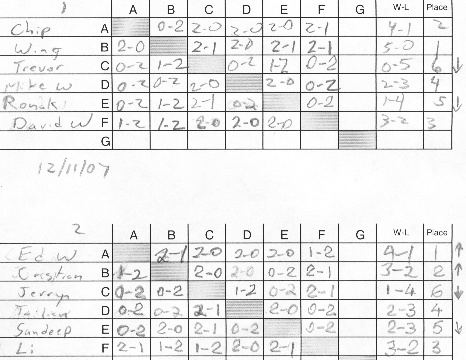 1
A B C D E F G W-L Place
Chip A 0-2 2-0 2-0 2-0 2-1 4-1 2
Wing B 2-0 2-1 2-0 2-1 2-1 5-0 1
Trevor C 0-2 1-2 0-2 1-2 0-2 0-5 6 ↓
Mike W D 0-2 0-2 2-0 2-0 0-2 2-3 4
E 0-2 1-2 2-1 0-2 0-2 1-4 5 ↓
David W F 1-2 1-2 2-0 2-0 2-0 3-2 3
G
12/11/07
2
A B C D E F G W-L Place
Ed W A 2-1 2-0 2-0 2-0 1-2 4-1 1 ↑
B 1-2 2-0 2-0 0-2 2-1 3-2 2 ↑
Jerryn C 0-2 0-2 1-2 0-2 2-1 1-4 6 ↓
D 0-2 0-2 2-1 2-0 0-2 2-3 4
Sandeep E 0-2 2-0 2-1 0-2 0-2 2-3 5 ↓
Li F 2-1 1-2 1-2 2-0 2-1 3-2 3